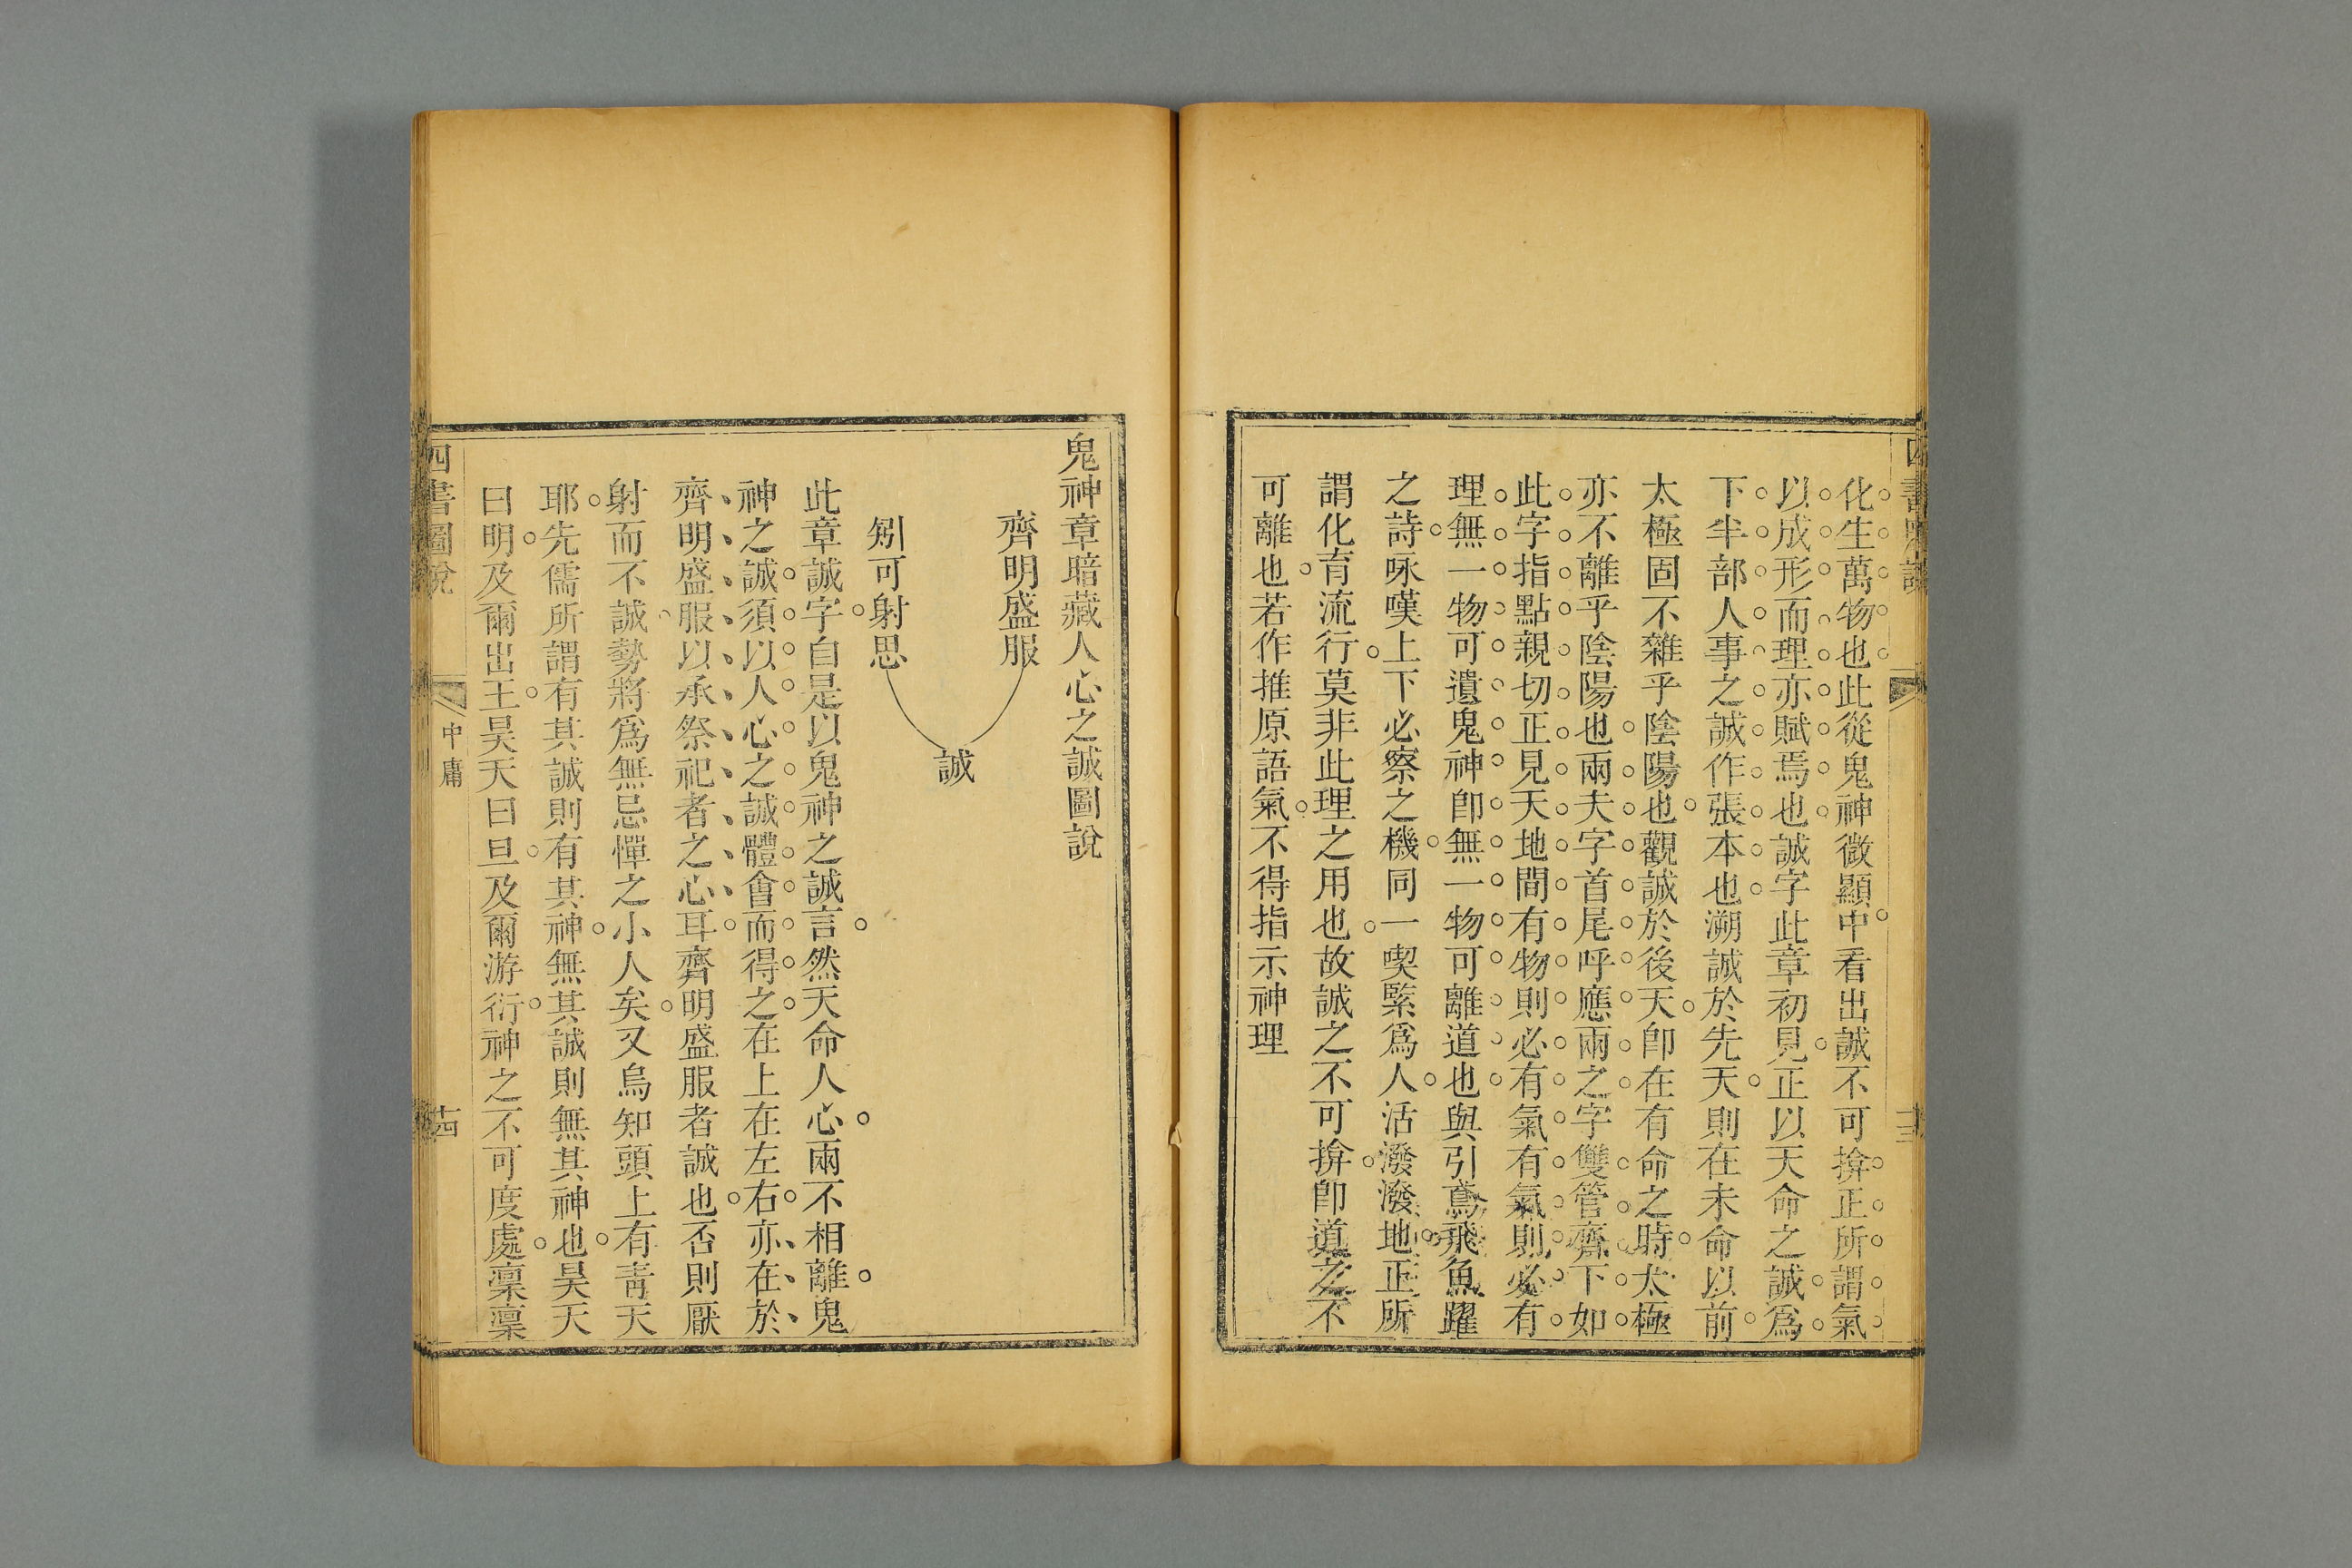 化生萬物也此從鬼神微顯中看出誠不可揜正所謂氣
以成形而理亦賦焉也誠字此章初見正以天命之誠爲
下半部人事之誠作張本也溯誠於先天則在未命以前
太極固不雜乎陰陽也觀誠於後天卽在有命之時太極
亦不離乎陰陽也兩夫字首尾呼應兩之字雙管齊下如
此字指點親切正見天地間有物則必有氣有氣則必有
理無一物可遺鬼神卽無一物可離道也與引鳶飛魚躍
之詩咏嘆上下必察之機同一喫緊爲人活潑潑地正所
謂化育流行莫非此理之用也故誠之不可揜卽道之不
可離也若作推原語氣不得指示神理
鬼神章暗藏人心之誠圖說
齊明盛服
誠
矧可射思
此章誠字自是以鬼神之誠言然天命人心兩不相離鬼
神之誠須以人心之誠體會而得之在上在左右亦在於
齊明盛服以承祭祀者之心耳齊明盛服者誠也否則厭
射而不誠勢將爲無忌憚之小人矣又烏知頭上有靑天
耶先儒所謂有其誠則有其神無其誠則無其神也昊天
曰明及爾出王昊天曰旦及爾游衍神之不可度處凜凜
四書圖說
中庸
十四